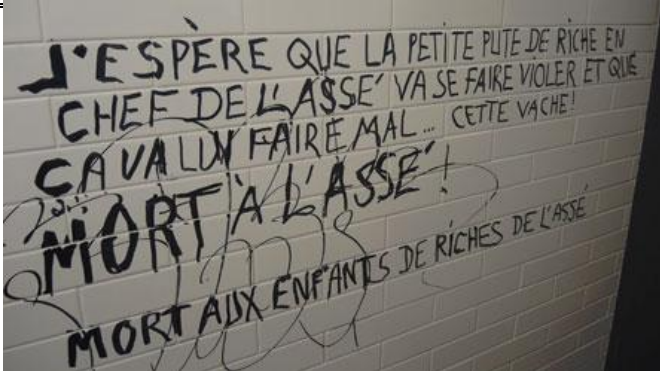 J'ESPÈRE QUE LA PETITE PUTE DE RICHE EN
CHEF DE L'ASSÉ VA SE FAIRE VIOLER ET QUE
ÇA VA LUY FAIRE MAL... CETTE VACHE!
MORT À L'ASSÉ!
MORT AUX ENFANTS DE RICHES DE L'ASSÉ